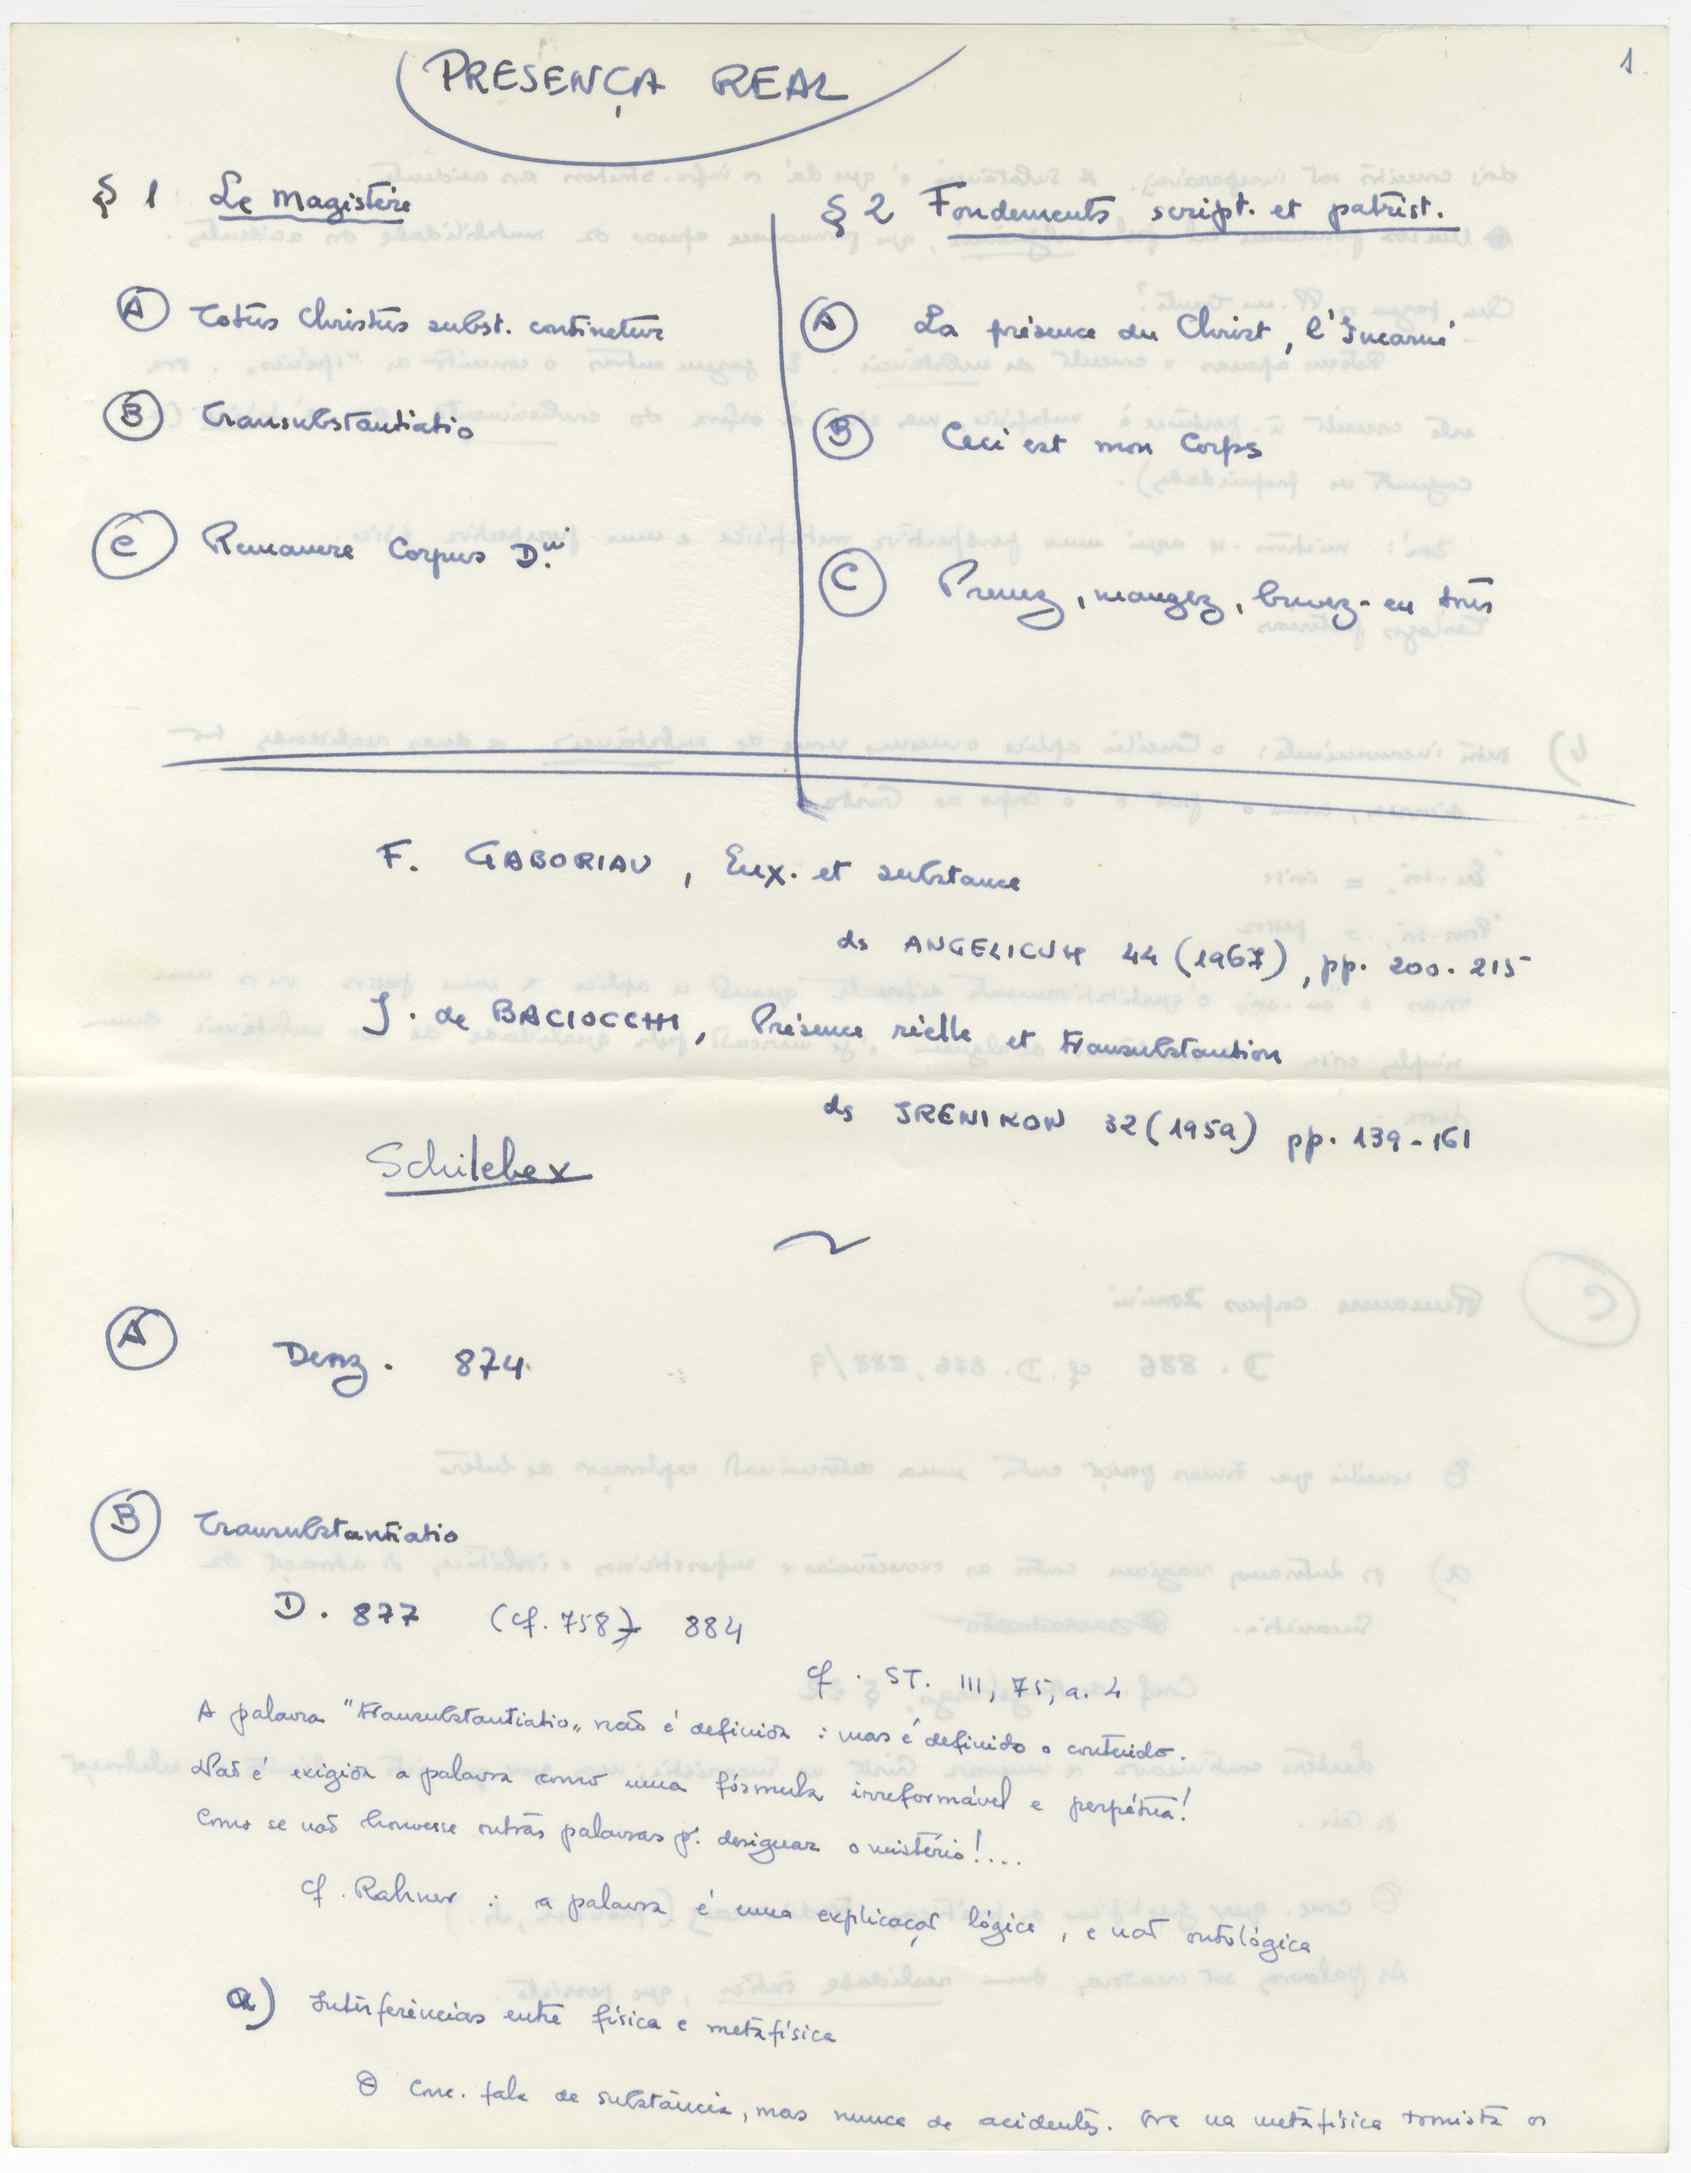 1.
PRESENÇA REAL
§ 1 Le Magistère
Ⓐ Totus Christus subst. continetur
Ⓑ Transubstantiatio
Ⓒ Remanere Corpus D.ni
§ 2 Fondements script. et patrist.
Ⓐ La présence du Christ, l'Incarné
Ⓑ Ceci est mon Corps
Ⓒ Prenez, mangez, buvez-en tous
F. GABORIAU, Eux. et substance
ds ANGELICUM 44 (1967), pp. 200-215
J. de BACIOCCHI, Présence réelle et transubstantion
ds IRENIKON 32 (1959) pp. 139-161
Schilebex
Ⓐ Denz. 874
Ⓑ Transubstantiatio
D. 877 (cf. 758) 884
cf. ST. III, 75, a. 4
A palavra "transubstantiatio" não é definida : mas é definido o conteúdo.
Não é exigida a palavra como uma fórmula irreformável e perpétua!
Como se não houvesse outras palavras p. designar o mistério!...
cf. Rahner : a palavra é uma explicação lógica, e não ontológica
a) Interferências entre física e metafísica
O Conc. fala de substância, mas nunca de acidentes. Ora na metafísica tomista os